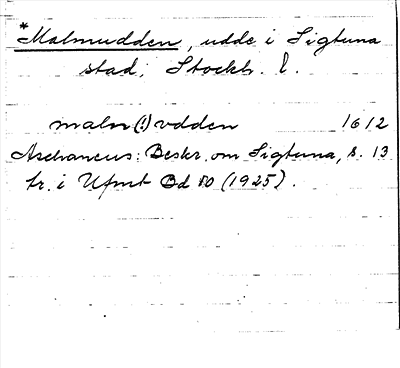 *Malmudden, udde i Sigtuna
stad, Stockh. l.
malm(!)vdden 1612
Aschaneus: Beskr. om Sigtuna, s. 13
tr. i Ufmt Bd 10 (1925).